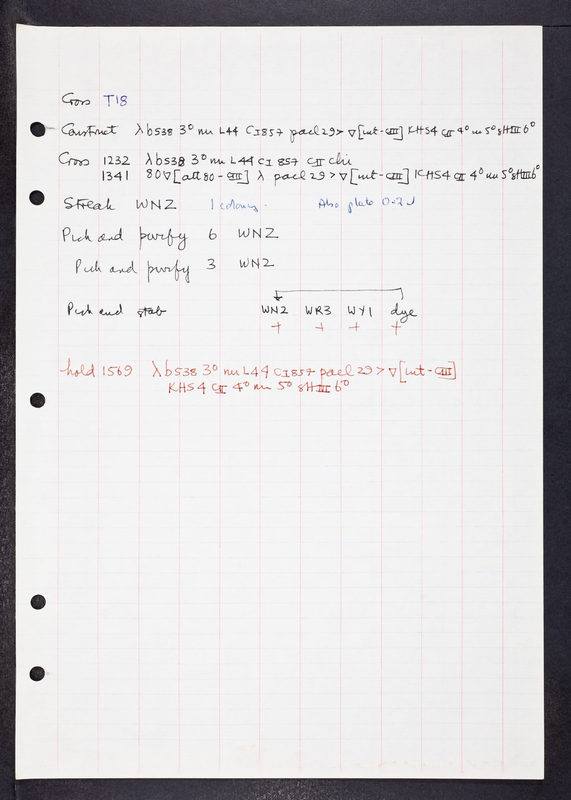 Cross T18
Construct λ b538 3° nu L44 CI857 pael 29 > ∇[int-CIII] KHS4 CII 4° nu 5° sHIII 6°
Cross 1232 λ b538 3° nu L44 CI 857 CII chi
1341 80∇[att80-CIII] λ pael 29 > ∇[int-CIII] KHS4 CII 4° nu 5° sHIII 6°
Streak WN2 1 colony. Also plate
Pick and purify 6 WN2
Pick and purify 3 WN2
Pick and stab WN2 WR3 WY1 dye
+ + + +
hold 1569 λ b538 3° nu L44 CI857 pael 29 > ∇[int-CIII]
KHS4 CII 4° nu 5° sHIII 6°